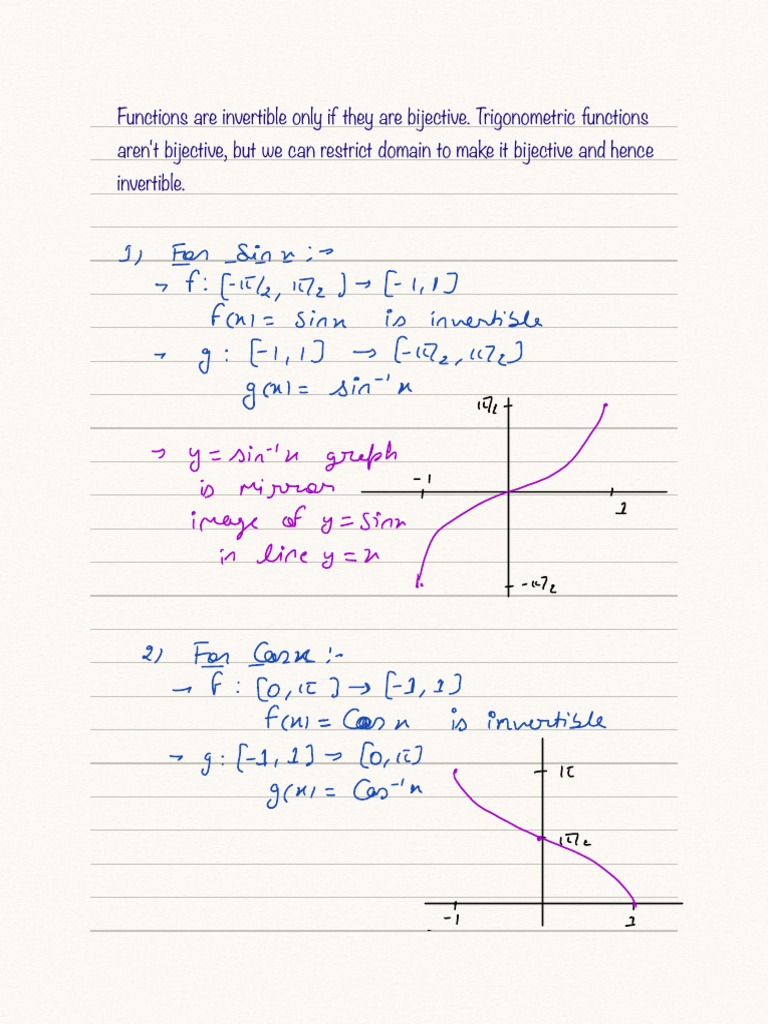 Functions are invertible only if they are bijective. Trigonometric functions
aren't bijective, but we can restrict domain to make it bijective and hence
invertible.
1) For Sin x :→
→ f : [-π/2, π/2] → [-1, 1]
f(x) = sin x is invertible
→ g : [-1, 1] → [-π/2, π/2]
g(x) = sin⁻¹ x
π/2
→ y = sin⁻¹ x graph
-1
is mirror
1
image of y = sin x
in line y = x
-π/2
2) For Cos x :-
→ f : [0, π] → [-1, 1]
f(x) = Cos x is invertible
→ g : [-1, 1] → [0, π]
π
g(x) = Cos⁻¹ x
π/2
-1
1